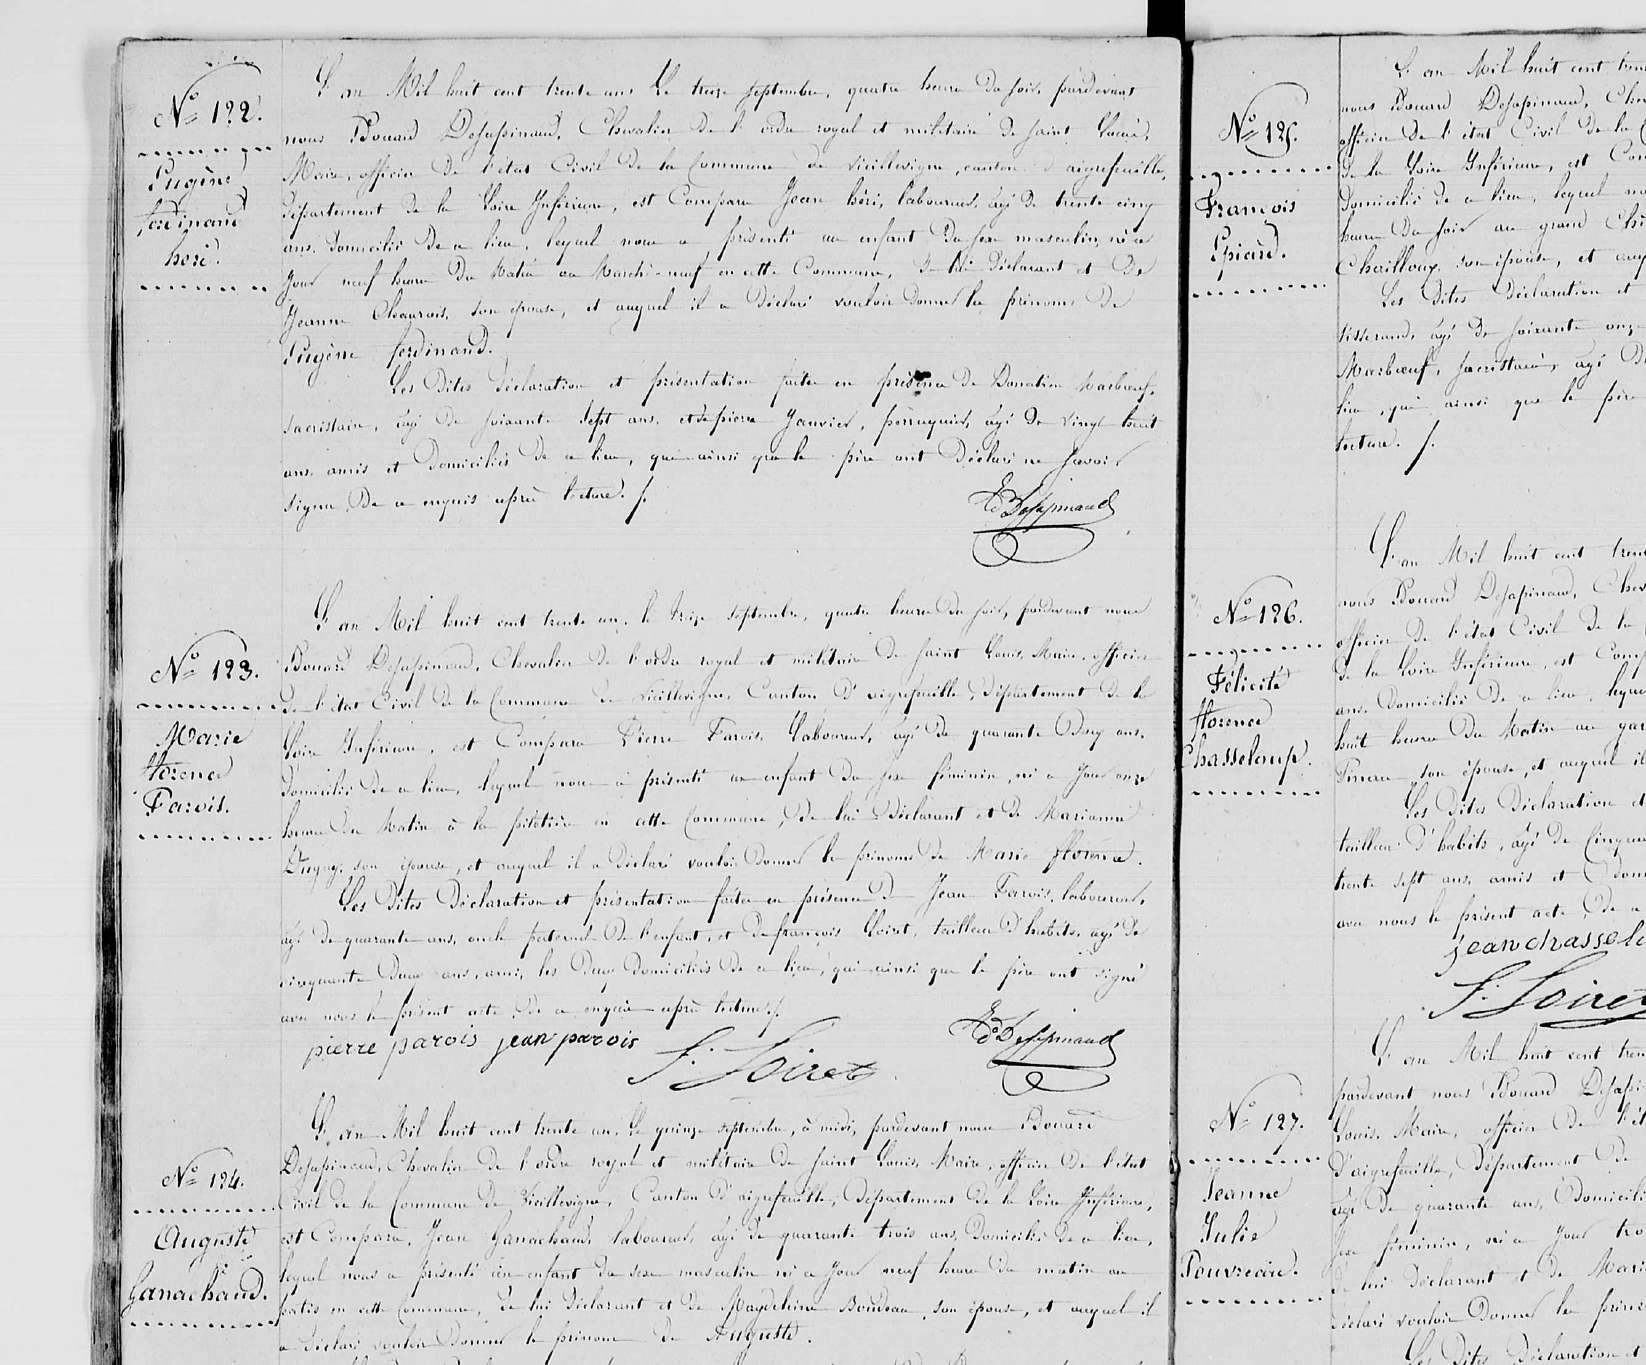 N° 122.
Eugène
ferdinand
héri.
L'an Mil huit cent trente un. Le treize septembre, quatre heure du soir, pardevant
nous Edouard Desapinaud, Chevalier De l'ordre royal et militaire de saint Louis,
Maire, officier De l'état Civil De la Commune de vieillevigne, canton d'aigrefeuille,
département de la Loire Inférieure, est Comparu Jean héri, laboureur, âgé De trente cinq
ans. Domicilié De ce lieu, lequel nous a présenté un enfant Du sexe masculin, né ce
Jour neuf heure Du Matin au Marché-neuf en cette Commune, De lui Déclarant et De
Jeanne Charois, son épouse, et auquel il a Déclaré vouloir Donner les prénoms De
Eugène ferdinand.
Les Dites Déclaration et présentation faites en présence De Donatien Marboeuf,
sacristain, âgé De soixante sept ans, et de pierre Janvier, perruquier, âgé De vingt huit
ans. amis et Domiciliés De ce lieu, qui ainsi que le père ont Déclaré ne savoir
signer De ce enquis après lecture. /.
Ed Desapinaud
N° 123.
Marie
florence
Parois.
L'an Mil huit cent trente un, le treize septembre, quatre heure du soir, pardevant nous
Edouard Desapinaud, Chevalier De l'ordre royal et militaire De saint Louis, Maire, officier
De l'état Civil De la Commune De vieillevigne, Canton D'aigrefeuille, département De la
Loire Inférieure, est Comparu Pierre Parois, laboureur, âgé De quarante Deux ans.
Domicilié De ce lieu, lequel nous a présenté un enfant Du sexe féminin, né ce Jour onze
heure Du Matin à la pilotière en cette Commune, De lui Déclarant et De Marianne
Dugay, son épouse, et auquel il a Déclaré vouloir Donner le prénoms De Marie florence.
Les Dites Déclaration et présentation faites en présence De Jean Parois, laboureur,
âgé De quarante ans, oncle paternel De l'enfant, et De françois Loiret, tailleur D'habits, âgé De
cinquante Deux ans, ami, les Deux Domiciliés De ce lieu, qui ainsi que le père ont signé
avec nous le présent acte De ce enquis après lecture. /.
pierre parois jean parois
F. Loiret
Ed Desapinaud
N° 124.
Auguste
Ganachaud.
L'an Mil huit cent trente un, Le quinze septembre, à midi, pardevant nous Edouard
Desapinaud, Chevalier De l'ordre royal et militaire De saint Louis, Maire, officier De l'état
Civil de la Commune De Vieillevigne, Canton D'aigrefeuille, Département De la Loire Inférieure,
est Comparu, Jean Ganachaud, laboureur, âgé De quarante trois ans, Domicilié De ce lieu,
lequel nous a présenté un enfant du sexe masculin né ce Jour neuf heure du matin au
patis en cette Commune, De lui Déclarant et De Magdeleine Boudeau, son épouse, et auquel il
a Déclaré vouloir Donner le prénom De Auguste.
N° 125.
François
Epiard.
L'an Mil huit cent tren
nous Edouard Desapinaud, Che
officier De l'état Civil De la C
De la Loire Inférieure, est Com
Domicilié de ce lieu, lequel no
heure Du soir au grand Ch
Chailloux, son épouse, et auq
Les Dites Déclaration et
tisserand, âgé De soixante onze
Marboeuf, sacristain, âgé De
lieu, qui ainsi que le père
lecture. /.
N° 126.
Félicité
florence
Chasseloup.
L'an Mil huit cent tren
nous Edouard Desapinaud, Chev
officier De l'état Civil De la
De la Loire Inférieure, est Comp
ans. Domicilié De ce lieu, leque
huit heure Du Matin au
Pineau son épouse, et auquel il
Les Dites Déclaration et
tailleur D'habits, âgé De Cinquan
trente sept ans, amis et Dom
avec nous le présent acte De ce
jean chassel
F. Loiret
N° 127.
Jeanne
Julie
Pouvreau.
L'an Mil huit cent tren
pardevant nous Edouard Desapi
Louis, Maire, officier De l'ét
D'aigrefeuille, Département De
âgé De quarante ans, Domicili
sexe féminin, né ce Jour tro
De lui Déclarant et De Mari
Déclaré vouloir Donner les prén
Les Dites Déclaration et